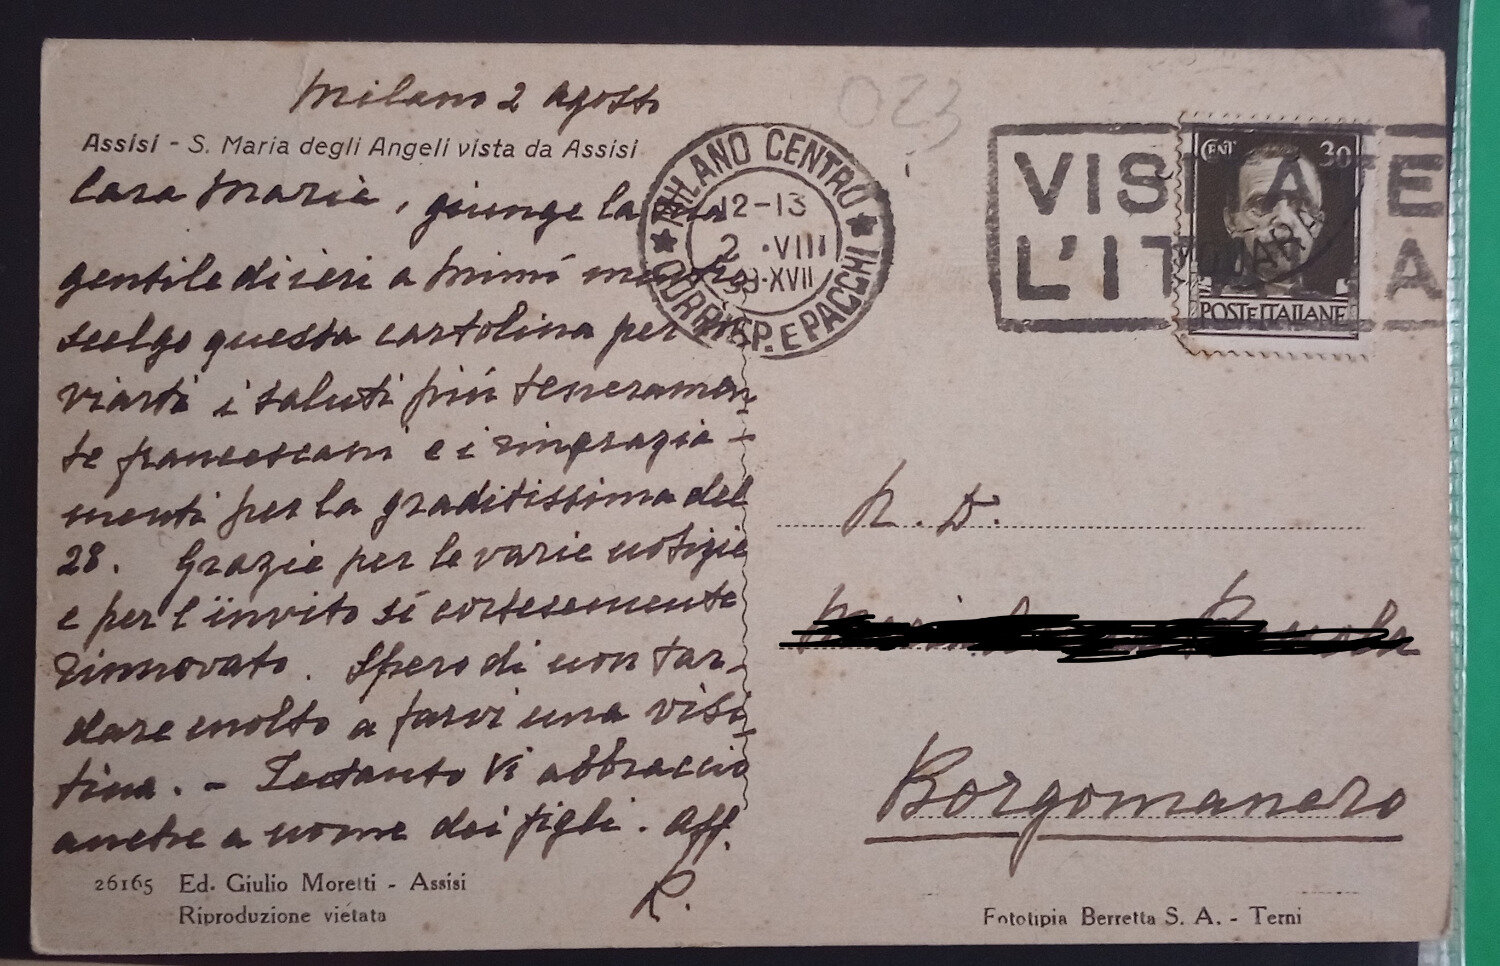 Milano 2 agosto
Assisi - S. Maria degli Angeli vista da Assisi
Cara Maria, giunge la tua
gentile di ieri a Mimí mentre
scelgo questa cartolina per in
viarti i saluti piú teneramen-
te francescani e i ringrazia-
menti per la graditissima del
28. Grazie per le varie notizie
e per l'invito sí cortesemente
rinnovato. Spero di non tar-
dare molto a farvi una visi-
tina. - Intanto Vi abbraccio
anche a nome dei figli. Aff.
R.
26165 Ed. Giulio Moretti - Assisi
Riproduzione vietata
023
MILANO CENTRO
12-13
2 ·VIII
39·XVII
CORRISP. E PACCHI
VISITATE
L'ITALIA
CENT. 30
POSTE ITALIANE
N. D.
Borgomanero
Fototipia Berretta S. A. - Terni